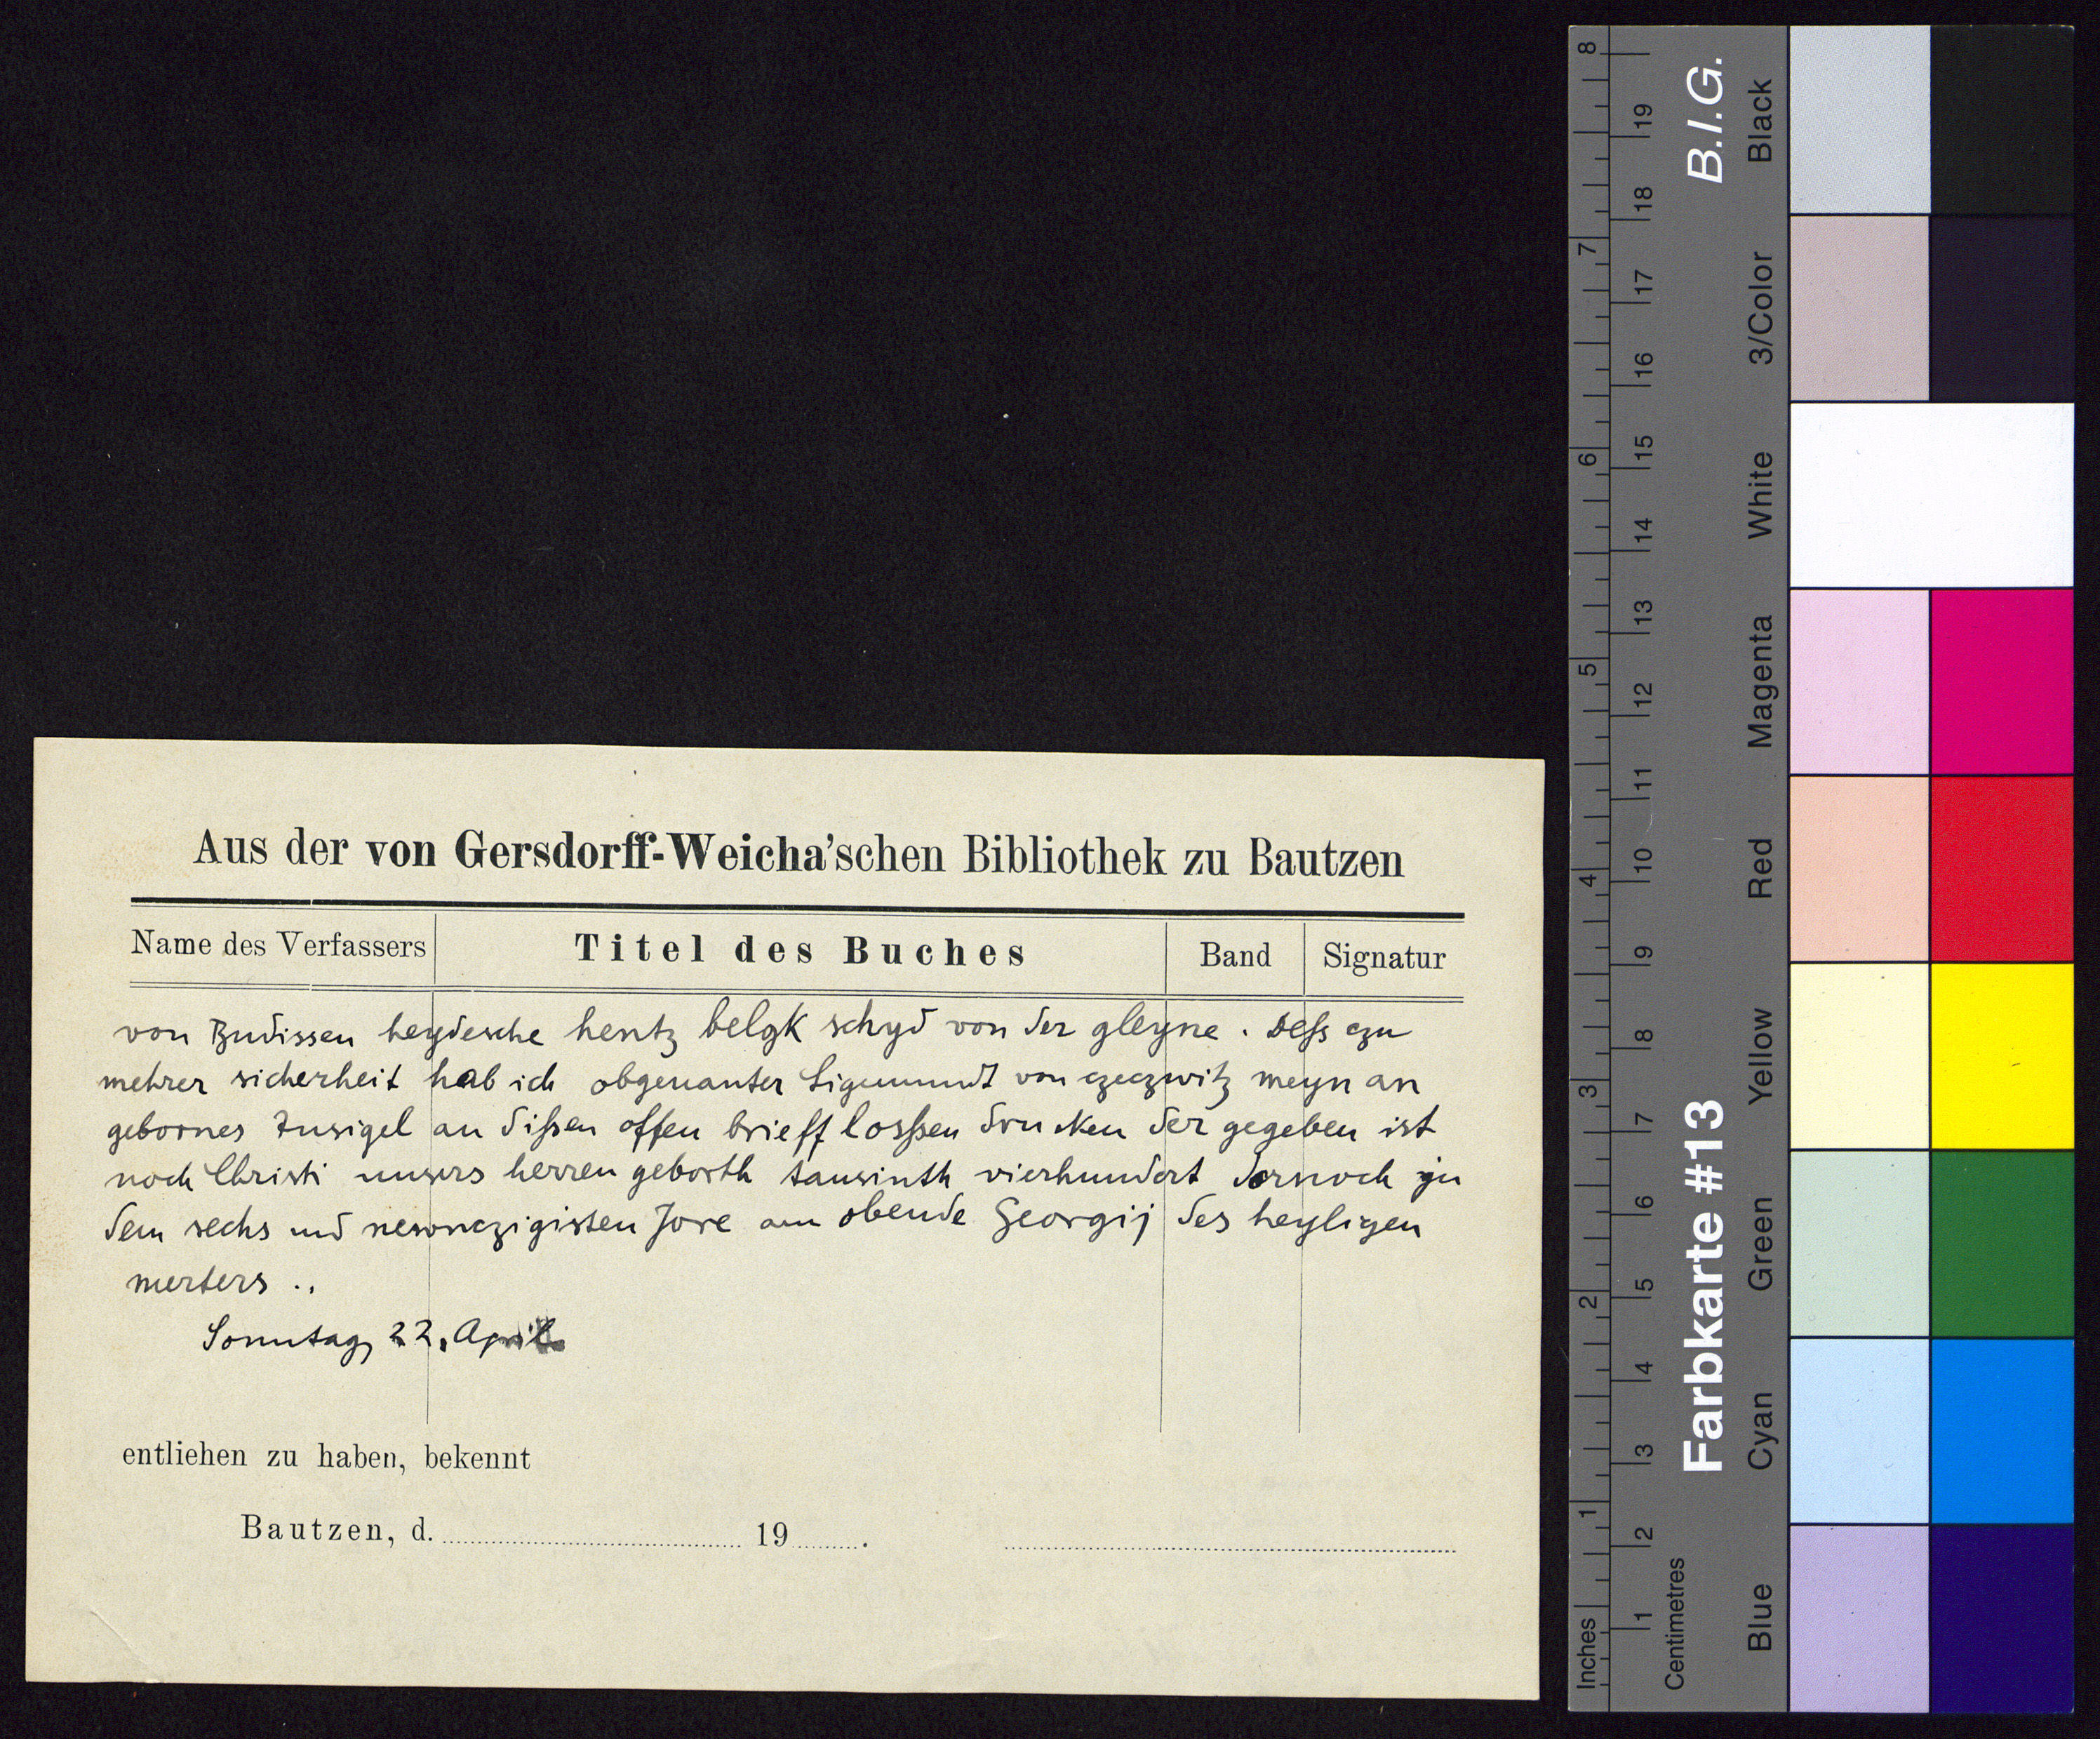 Aus der von Gersdorff-Weicha'schen Bibliothek zu Bautzen
Name des Verfassers Titel des Buches Band Signatur
von Budissen heydesche hentz belgk schyd von der gleyne . Dess czu
mehrer sicherheit hab ich obgenanter Sigmundt von czeczwitz meyn an
gebornes Insigel an dißen offen brieff losßen drucken der gegeben ist
noch Christi unsers herren geborth tausinth vierhundert dornoch yn
dem sechs und newnczigisten Jore am obende Georgij des heyligen
merters ..
Sonntag, 22. April
entliehen zu haben, bekennt
Bautzen, d. 19 .
8 7 6 5 4 3 2 1 Inches
19 18 17 16 15 14 13 12 11 10 9 8 7 6 5 4 3 2 1 Centimetres
B.I.G.
Farbkarte #13
Black
3/Color
White
Magenta
Red
Yellow
Green
Cyan
Blue